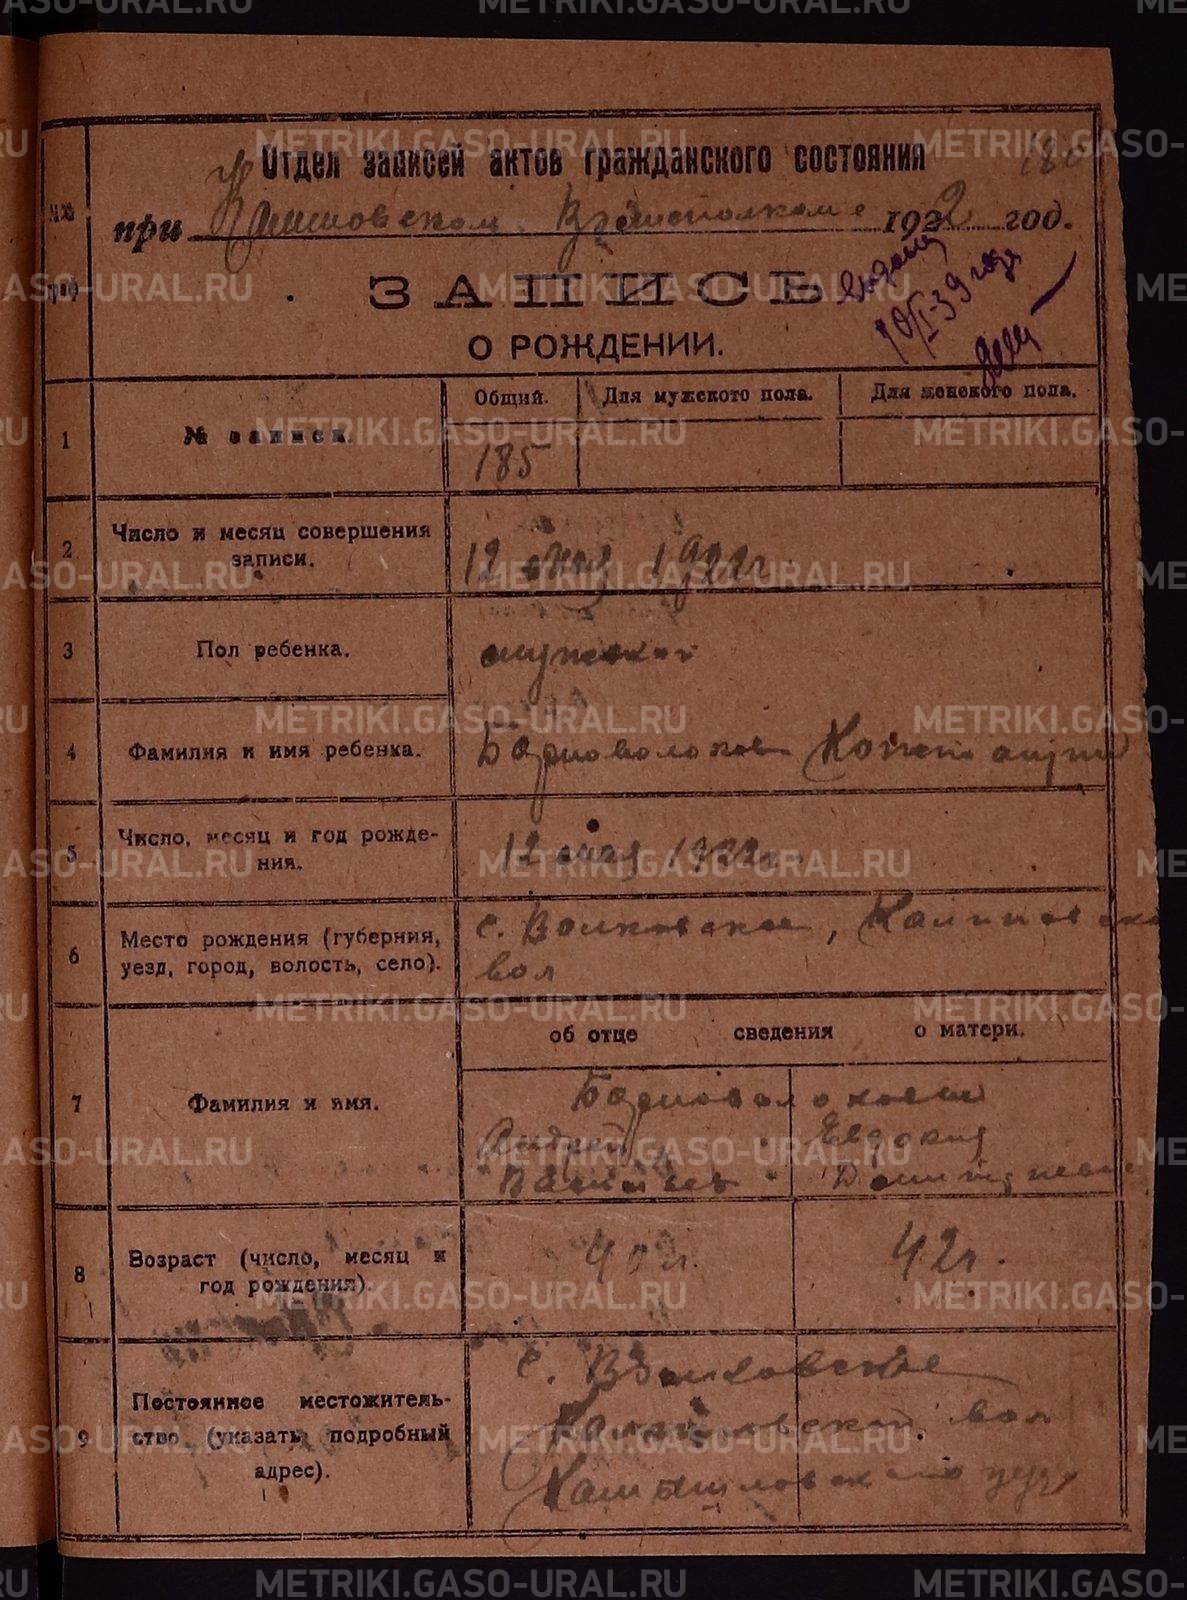 Отдел записей актов гражданского состояния
при Калиновском Волисполкоме 1922 год.
ЗАПИСЬ
О РОЖДЕНИИ.
10/I-39 года
Общий. Для мужского пола. Для женского пола.
1 № записи. 185
2 Число и месяц совершения
записи.
12 мая 1922 г
3 Пол ребенка. мужской
4 Фамилия и имя ребенка. Константин
5 Число, месяц и год рожде-
ния.
12 мая 1922 г.
6 Место рождения (губерния,
уезд, город, волость, село).
с. Волковское, Калиновской
вол
об отце сведения о матери.
7 Фамилия и имя.
Андрей Евдокия
8 Возраст (число, месяц и
год рождения).
40 л. 42 г.
9 Постоянное местожитель-
ство (указать подробный
адрес).
с. Волковское
Калиновской вол
Камышловского уезд
METRIKI.GASO-URAL.RU